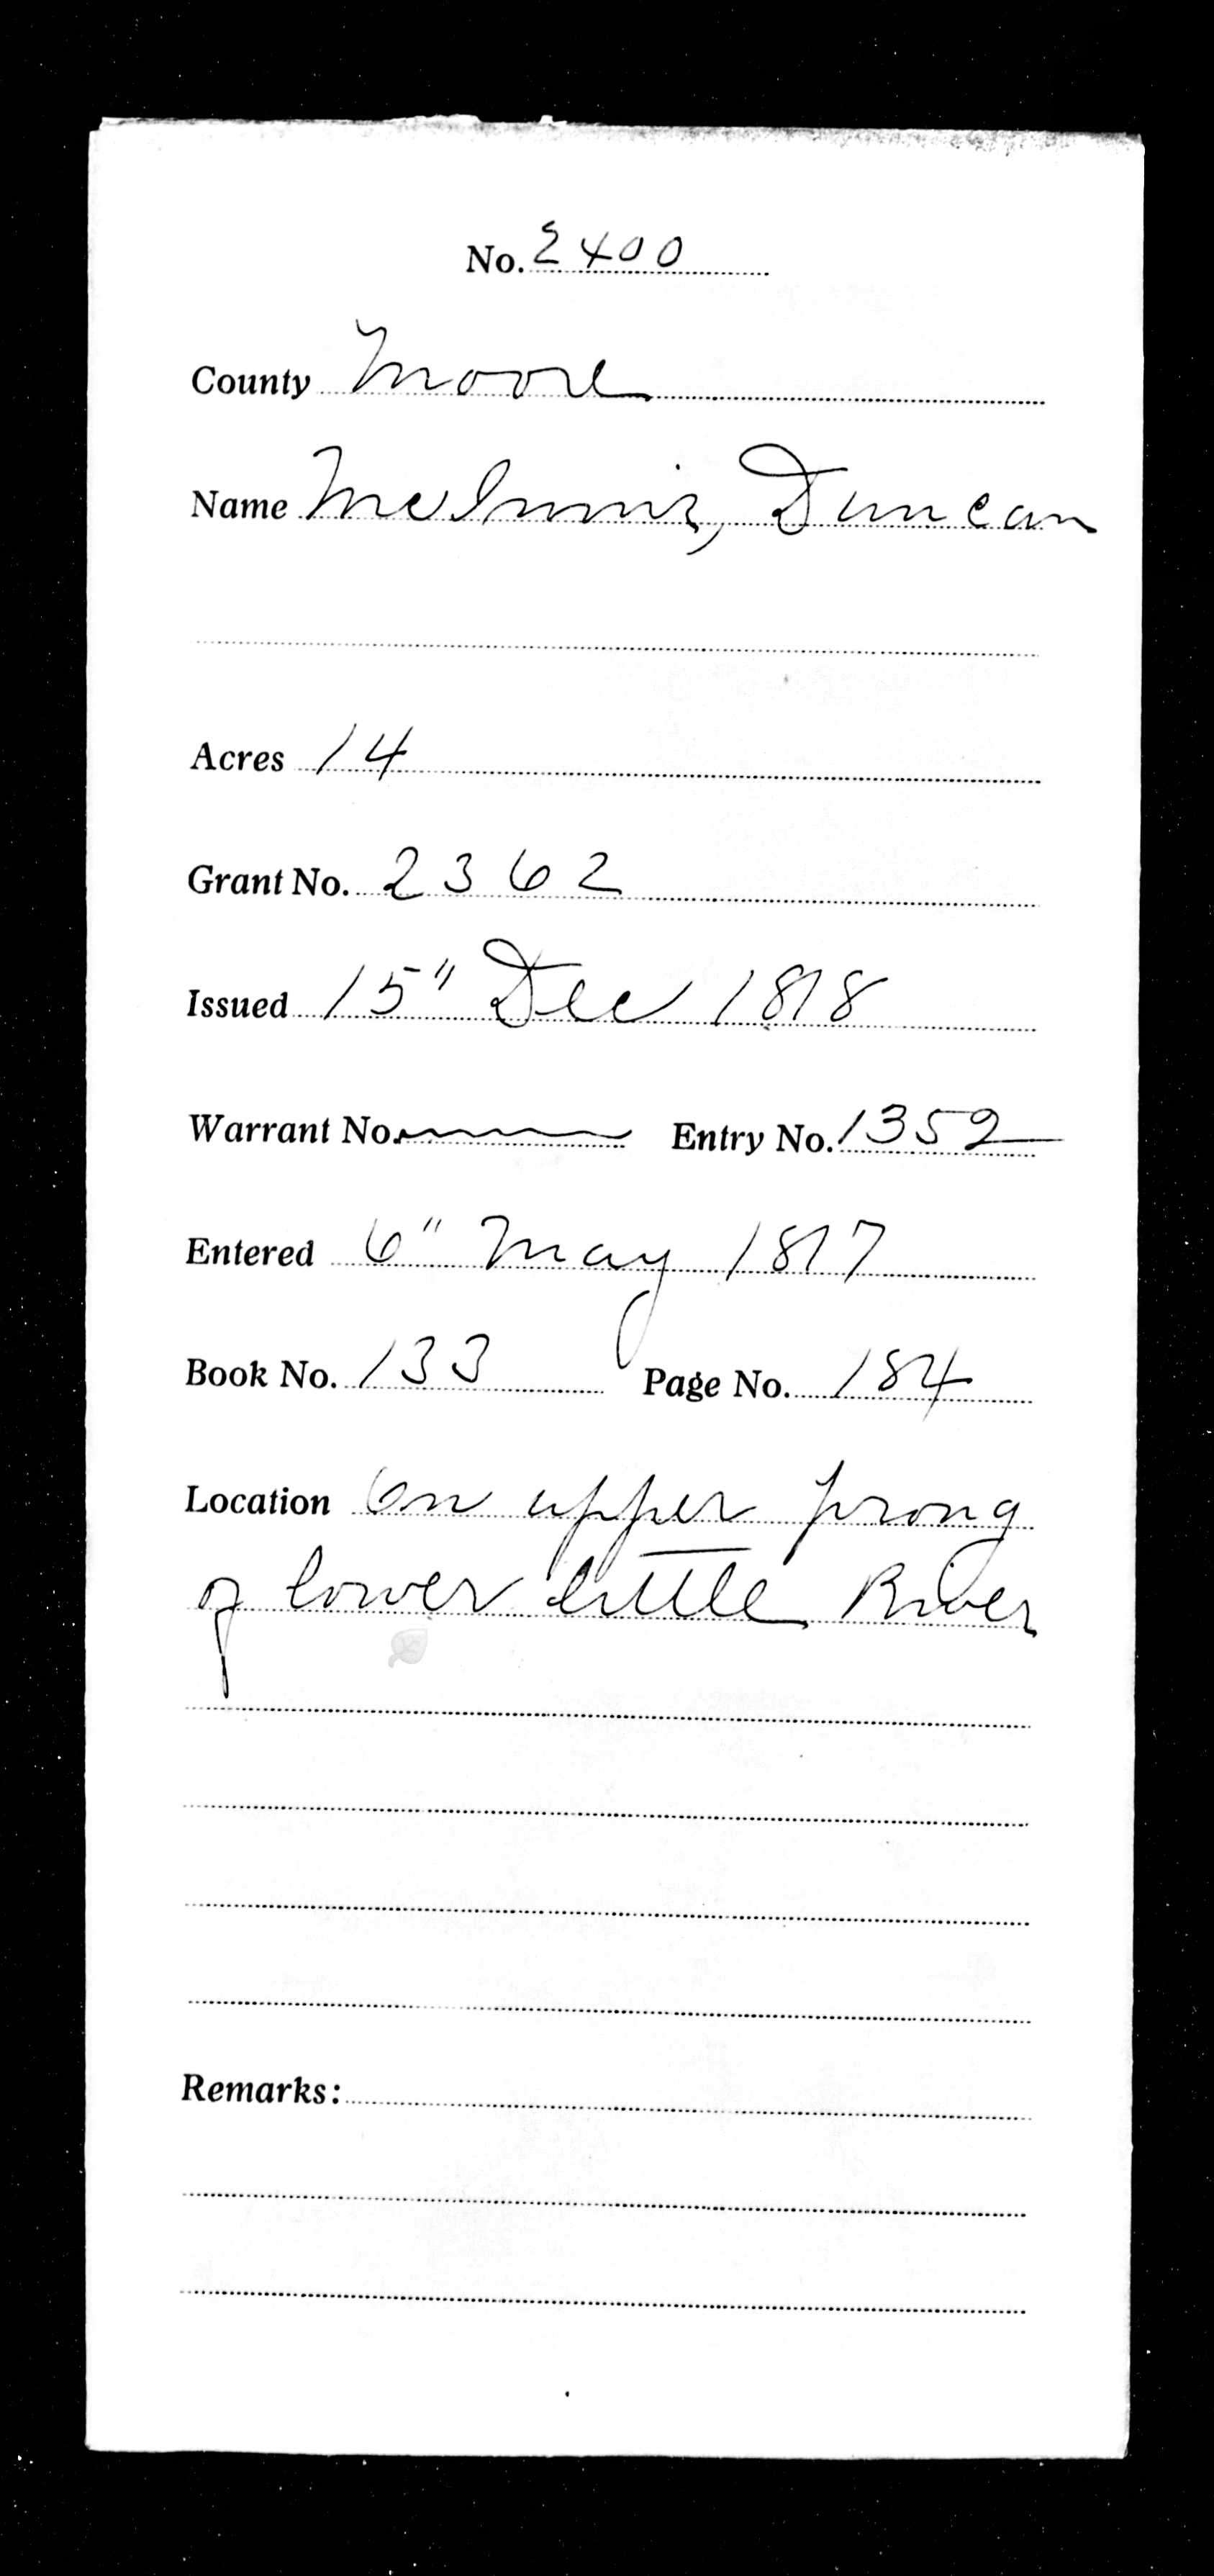 No. 2400
County Moore
Name McInnis, Duncan
Acres 14
Grant No. 2362
Issued 15" Dec 1818
Warrant No. Entry No. 1352
Entered 6" May 1817
Book No. 133 Page No. 184
Location On upper prong
of lower little River
Remarks: